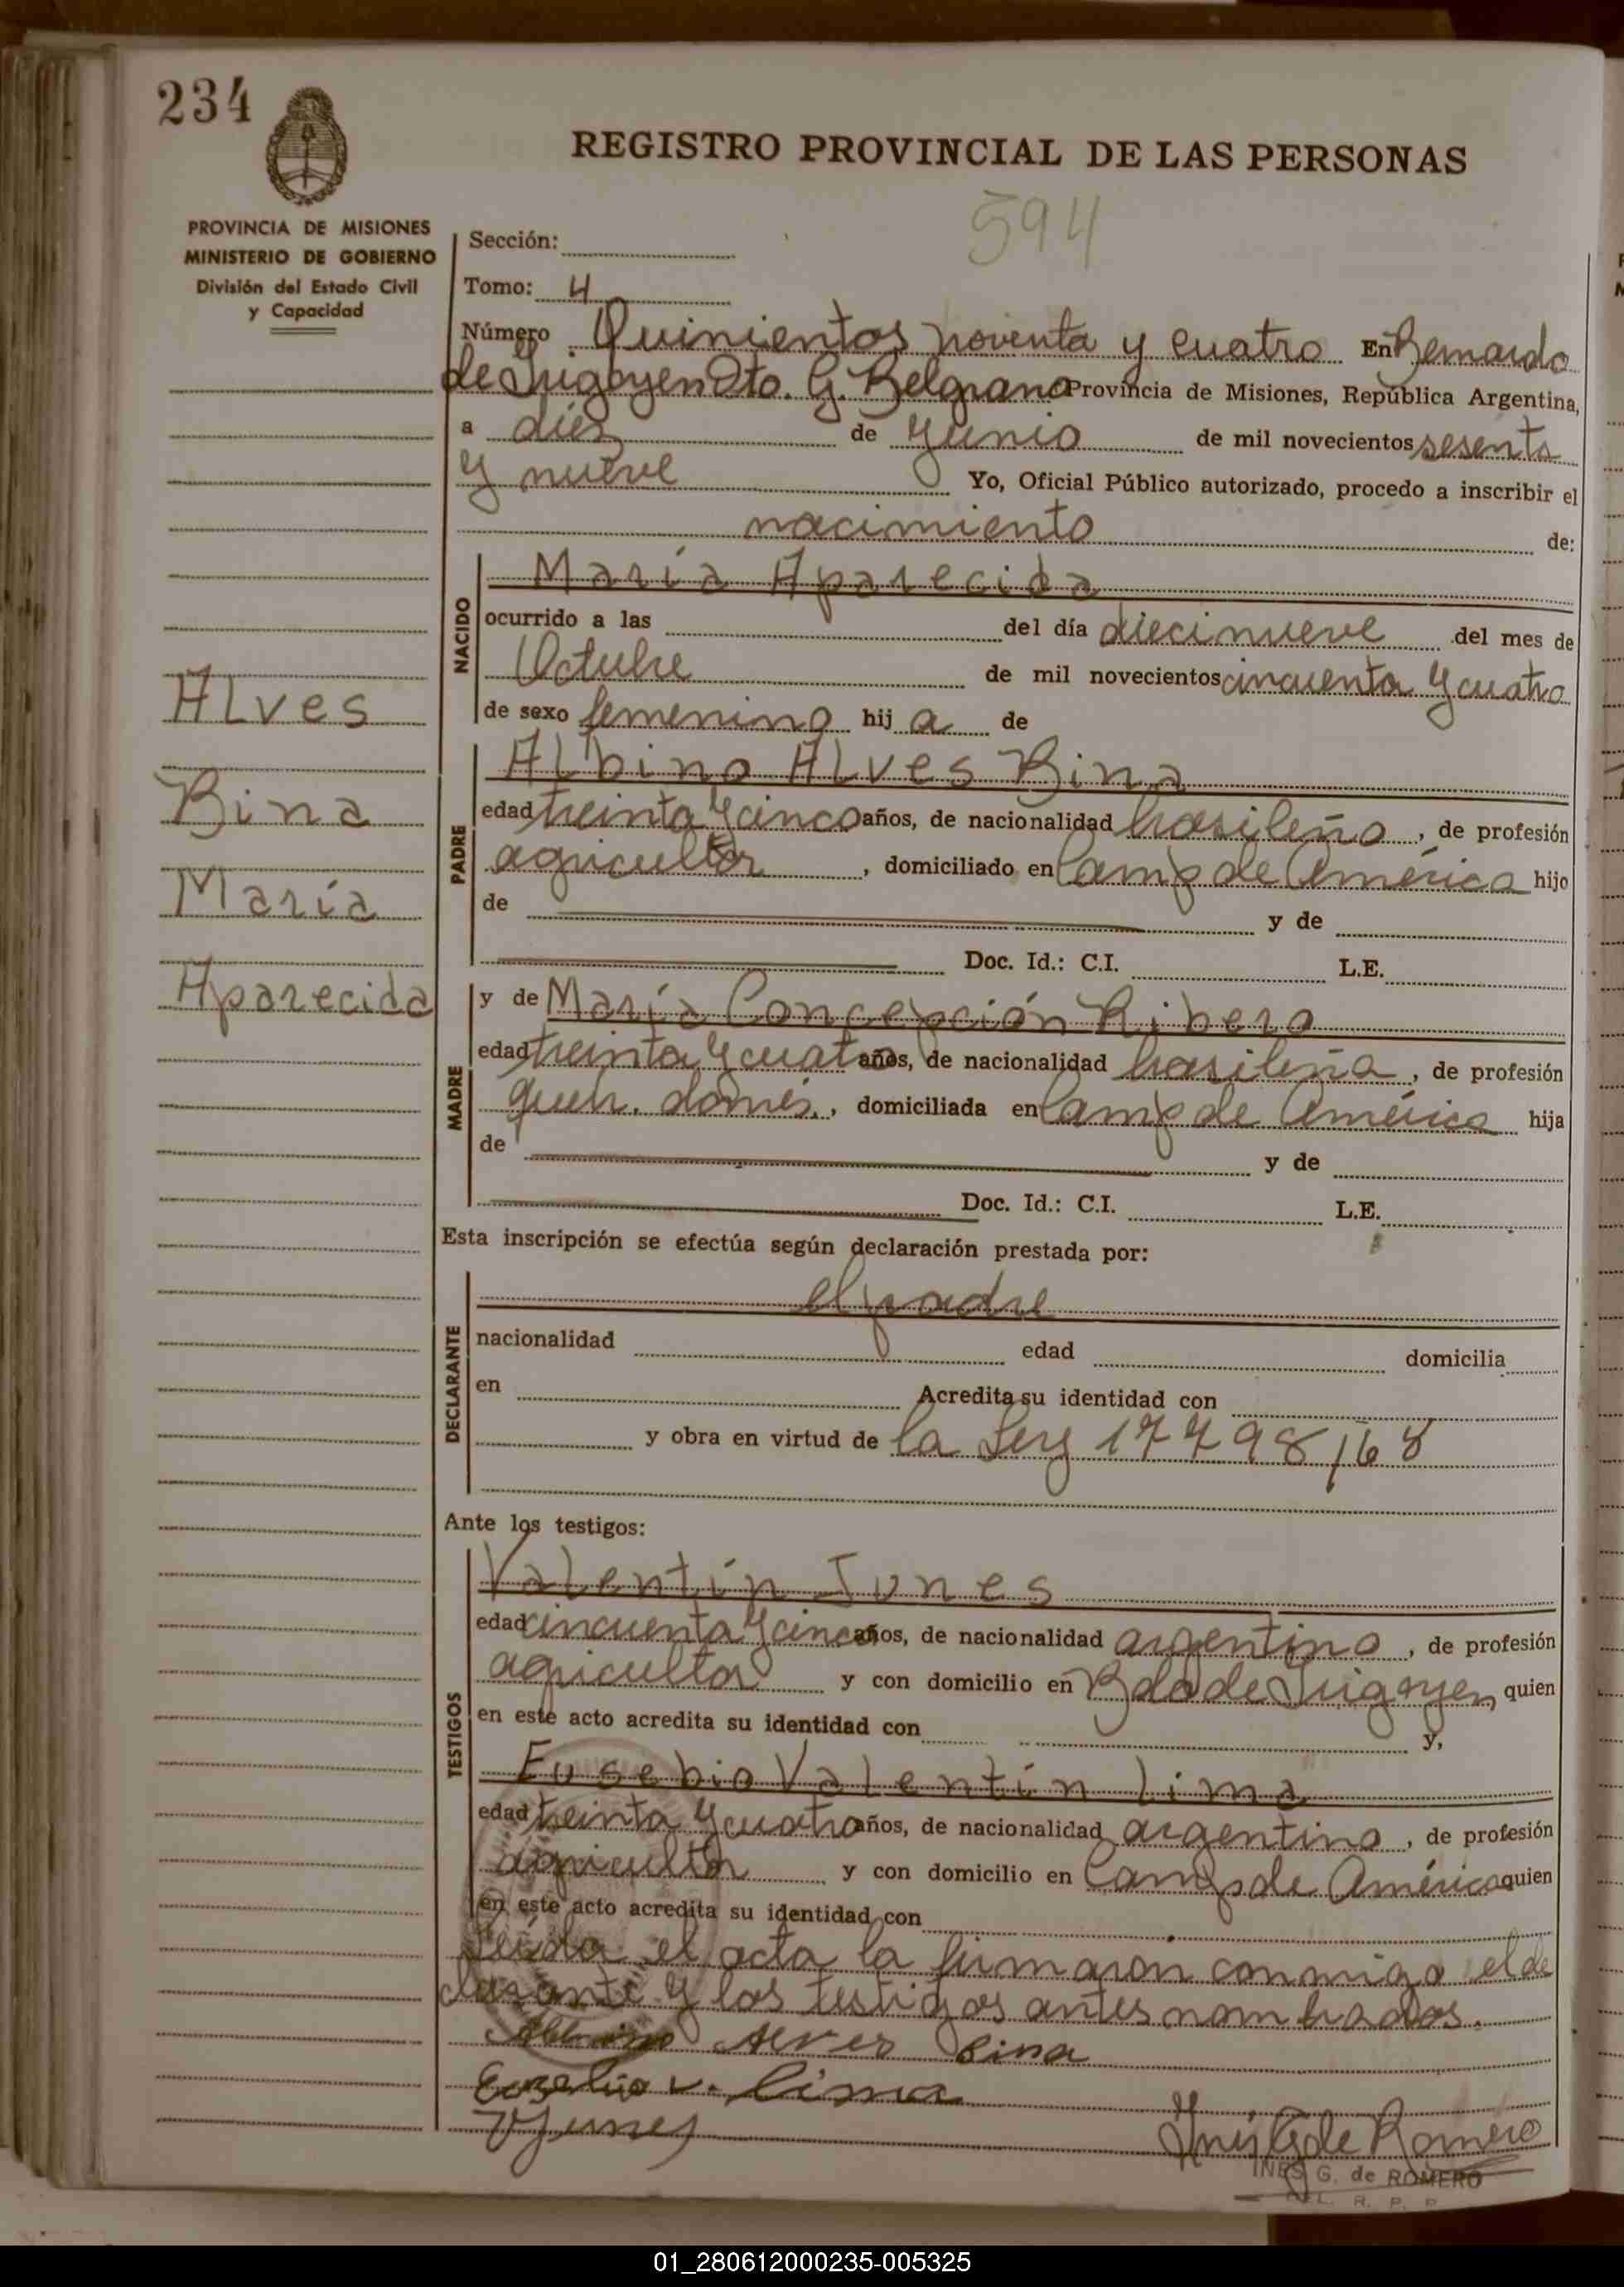 234
REGISTRO PROVINCIAL DE LAS PERSONAS
PROVINCIA DE MISIONES
MINISTERIO DE GOBIERNO
División del Estado Civil
y Capacidad
594
Sección:
Tomo: 4
Número Quinientos noventa y cuatro En Bernardo
de Irigoyen Dto. G. Belgrano Provincia de Misiones, República Argentina,
a diez de Junio de mil novecientos sesenta
y nueve Yo, Oficial Público autorizado, procedo a inscribir el
nacimiento de:
NACIDO
María Aparecida
ocurrido a las del día diecinueve del mes de
Octubre de mil novecientos cincuenta y cuatro
de sexo femenino hij a de
Alves
Bina
María
Aparecida
PADRE
Albino Alves Bina
edad treinta y cinco años, de nacionalidad brasileño, de profesión
agricultor, domiciliado en Camp de América hijo
de y de
Doc. Id.: C.I. L.E.
MADRE
y de María Concepción Ribero
edad treinta y cuatro años, de nacionalidad brasileña, de profesión
queh. domés., domiciliada en Camp de América hija
de y de
Doc. Id.: C.I. L.E.
Esta inscripción se efectúa según declaración prestada por:
DECLARANTE
el padre
nacionalidad edad domicilia
en Acredita su identidad con
y obra en virtud de la Ley 17798/68
Ante los testigos:
TESTIGOS
Valentín Junes
edad cincuenta y cinco años, de nacionalidad argentino, de profesión
agricultor y con domicilio en Bdo de Irigoyen, quien
en este acto acredita su identidad con y,
Eusebio Valentín Lima
edad treinta y cuatro años, de nacionalidad argentino, de profesión
agricultor y con domicilio en Camp de América quien
en este acto acredita su identidad con
Leída el acta la firmaron conmigo el de
clarante y los testigos antes nombrados.
Albino Alves Bina
Eusebio V. Lima
V Junes
Inés G de Romero
INES G. de ROMERO
DEL. R. P. P.
01_280612000235-005325